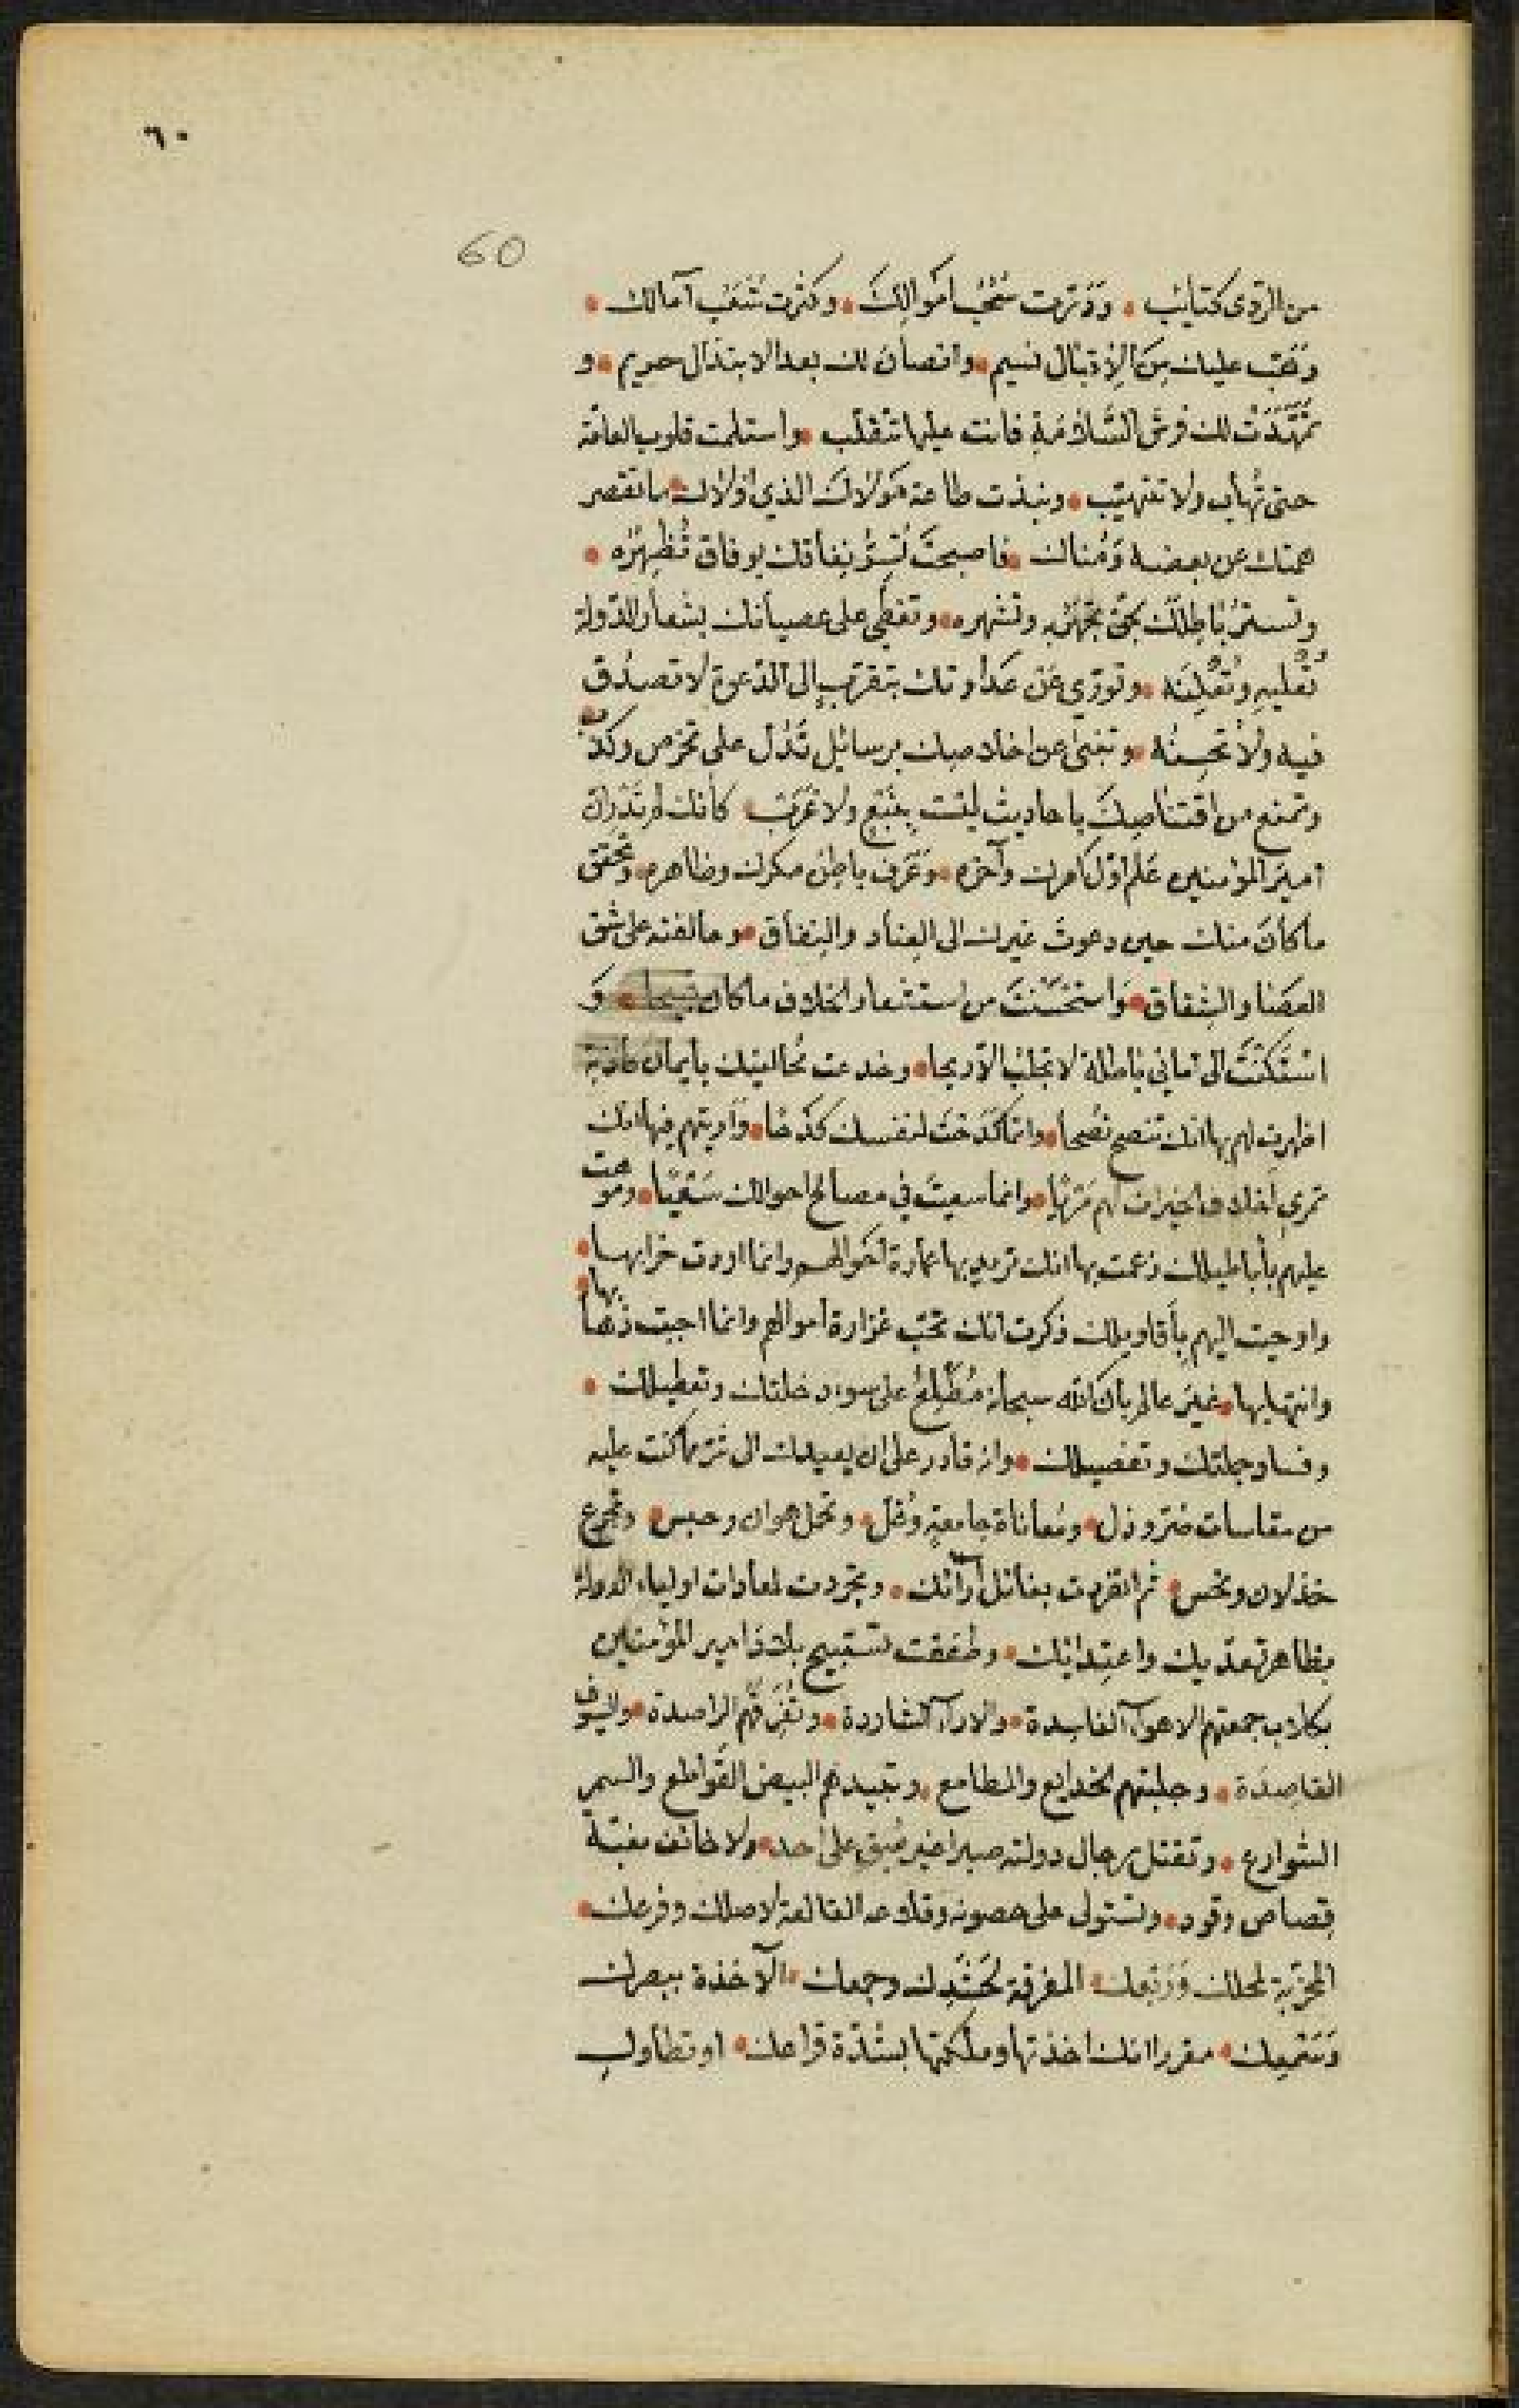 ٦٠
60
من الردى كتائب • ودَرّت سُحُبُ اَموالِكَ • وكثرت شُعَبُ آمالك •
وهَبّ عليك مِن الاِقبال نسيم • وانصان لك بعد الابتذال حريم • و
تَمَهَّدَتْ لك فرش السَّلامَةِ فانت عليها تتقلّب • واستلمت قلوب العامّة
حتى تُهاب ولا تتهيّب • ونبذت طاعة مَولاكَ الذي اَولاك ما تقصر
همتك عن بعضه ومُناك • فاصبحتَ تُسِرُّ نِفاقك بوِفاق تُظْهِرُه •
وتستُر بَاطِلَكَ بحقّ تَجْهَرُ به وتشهره • وتغطّي على عصيانك بشعار الدّولة
تُعْليهِ وتُعْلِنُه • وتورّي عَن عَداوتك بتقرّبٍ الى الدّعوة لا تصدُق
فيه ولا تُحسِنُه • وتنبئ عن اخلاصك برسائل تَدُلّ على تخرّص وكذب
وتمنع من اقتناصِكَ باحاديث ليست بِنَبْعٍ ولا غَرَبٍ • كانك لم تدرِ انّ
اميرَ المؤمنين عَلم اوّل امرك وآخره • وعَرف باطِن مكرك وظاهره • وتحقق
ما كانَ منك حين دعوتَ غيرك الى العِناد والنِفاق • وحالفته على شق
العصَا والشِقاق • واستحسَنْتَ من استشعار الخلاف ما كان قبيحا • وَ
استَكَنْتَ الى اماني بَاطلة لا تجلب الّا ريحا • وخدعت مُحالفيك بايمان كاذبة
اظهرت لهم بها انك تنصح نُصحا • وانما كَدَحْتَ لنفسك كَدْحًا • واَريتهم فيها انك
تمري اَخلاف الخيرات لهم مَرْيًا • وانما سعيتَ في مصالح احوالك سَعْيًا • وموهت
عليهم بأباطيلك زعمت بها انك تريد بها عمارة اَحوالهم وانما اردت خرابها •
واوحيت اليهم بِأقاويلك ذكرت انك تحبّ غزارة اموالهم وانما احببت ذهابها •
وانتهابها • غيرَ عالم بان الله سبحانه مُطَّلِعٌ على سوء دخلتك وتعطيلك •
وفساد جملتك وتفصيلك • وانه قادر على ان يعيدك الى شرّ ما كنت عليه
من مقاسات ضرّ وذل • ومُعاناة جامعةٍ وغُلّ • وتحمّل هوان وحبس • وتجرع
خذلان ونحس • ثم انفردت بفائل آرائك • وتجردت لمعادات اولياء الدولة
بظاهر تعدّيك واعتدائك • وطفقت تستبيح بلاد امير المؤمنين
بكلاب جمعتهم الاهوآء الفاسدة • والارآء الشاردة • وتُفرّقهم الراصدة • والسيوف
القاصِدَة • وجلبتهم الخدايع والمطامع • وتبيدهم البيض القَواطع والسمر
الشوارع • وتقتل رجال دولته صبرا غير مُبقٍ على احد • ولا خائف مغبّة
قِصاص وقود • وتستولى على حصونه وقلاعه القالعة لاصلك وفرعك •
المخرّبة لمحلك ورَبعك • المفرقة لحَشْدِك وجمعك • الآخذة ببصرك
وسَمْعِك • مقررا انك اخذتها وملكتها بشدّة قراعك • او تطاول